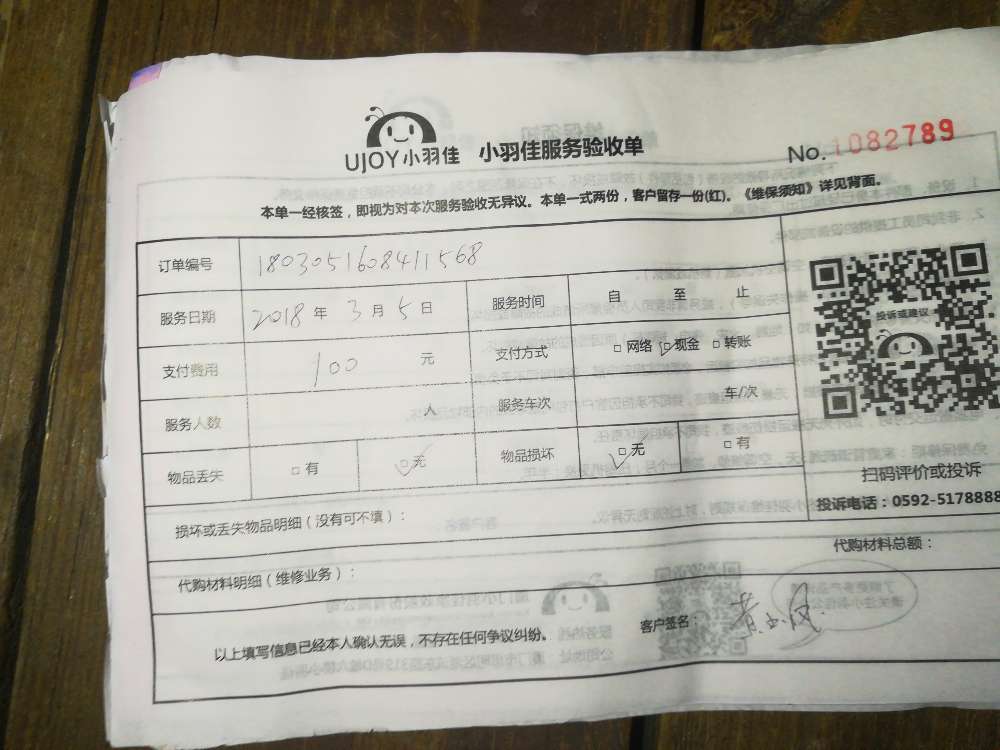 UJOY小羽佳 小羽佳服务验收单 No.1082789
本单一经核签，即视为对本次服务验收无异议。本单一式两份，客户留存一份(红)。《维保须知》详见背面。
订单编号 1803051608411568
服务日期 2018年3月5日 服务时间 自 至 止
支付费用 100 元 支付方式 □网络 □现金 □转账
服务人数 人 服务车次 车/次
物品丢失 □有 □无 物品损坏 □无 □有
投诉或建议
扫码评价或投诉
投诉电话：0592-5178888
损坏或丢失物品明细（没有可不填）：
代购材料明细（维修业务）： 代购材料总额：
以上填写信息已经本人确认无误，不存在任何争议纠纷。 客户签名：黄